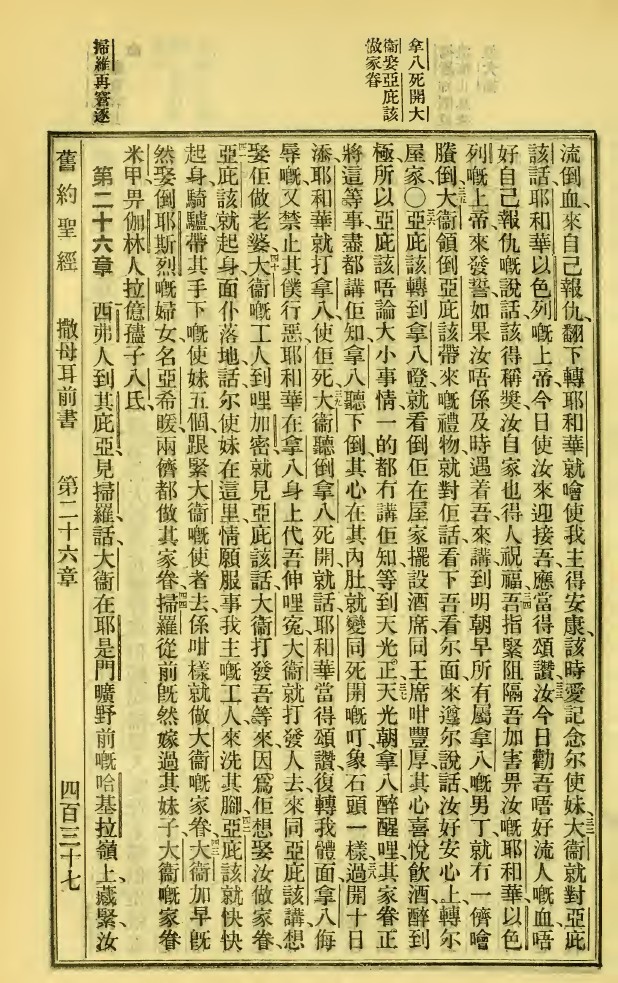 拿八死開大
衞娶亞庇該
做家眷
掃羅再窘逐
流倒血、來自己報仇、翻下轉耶和華就噲使我主得安康、該時愛記念尔使妹、三二大衞就對亞庇
該話、耶和華以色列嘅上帝、今日使汝來迎接吾、應當得頌讚、三三汝今日勸吾唔好流人嘅血、唔
好自己報仇嘅說話、該得稱獎、汝自家也得人祝福、三四吾指緊阻隔吾加害畀汝嘅耶和華以色
列嘅上帝來發誓、如果汝唔係及時遇着吾、來講到明朝早、所有屬拿八嘅男丁就冇一儕噲
賸倒、三五大衞領倒亞庇該帶來嘅禮物、就對佢話、看下吾看尔面來遵尔說話、汝好安心上轉尔
屋家、〇三六亞庇該轉到拿八嶝、就看倒佢在屋家擺設酒席、同王席咁豐厚、其心喜悅、飲酒醉到
極、所以亞庇該唔論大小事情、一的都冇講佢知、等到天光正、三七天光朝拿八醉醒哩、其家眷正
將這等事盡都講佢知、拿八聽下倒、其心在其內肚就變同死開嘅、叮象石頭一樣、三八過開十日
添、耶和華就打拿八使佢死、三九大衞聽倒拿八死開、就話、耶和華當得頌讚、復轉我體面、拿八侮
辱嘅、又禁止其僕行惡、耶和華在拿八身上代吾伸哩寃、大衞就打發人去來同亞庇該講、想
娶佢做老婆、四十大衞嘅工人到哩加密、就見亞庇該話、大衞打發吾等來、因爲佢想娶汝做家眷、
四一亞庇該就起身面仆落地、話、尔使妹在這里、情願服事我主嘅工人、來洗其腳、四二亞庇該就快快
起身騎驢、帶其手下嘅使妹五個、跟緊大衞嘅使者去、係咁樣就做大衞嘅家眷、四三大衞加早旣
然娶倒耶斯烈嘅婦女名亞希暖、兩儕都做其家眷、四四掃羅從前旣然嫁過其妹子大衞嘅家眷
米甲、畀伽林人拉億𡥧子八氐、
第二十六章 一西弗人到其庇亞見掃羅、話、大衞在耶是門曠野前嘅哈基拉嶺上、藏緊、汝
舊約聖經 撒母耳前書 第二十六章 四百三十七